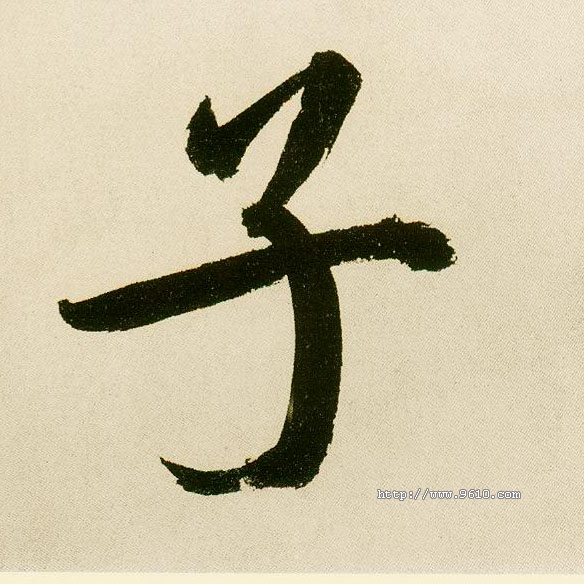 子
http://www.9610.com